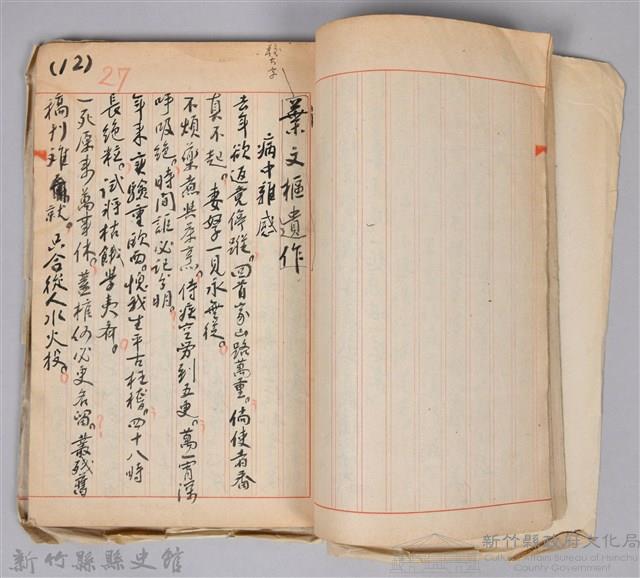 葉文樞遺作
病中雜感
去年欲返竟停蹤。回首家山路萬重。倘使者番
真不起。妻孥一見永無從。
不煩藥煮與茶烹。侍疾空勞到五更。萬一宵深
呼吸絕。時間誰必記分明。
年來實驗重歐西。愧我生平古枉稽。四十八時
長絕粒。試將枯餓學夷齊。
一死原來萬事休。蓋棺何必更名留。叢殘舊
稿刊難就。只合從人水火投。
(12)
27
新竹縣縣史館
新竹縣政府文化局
Cultural Affairs Bureau of Hsinchu
County Government